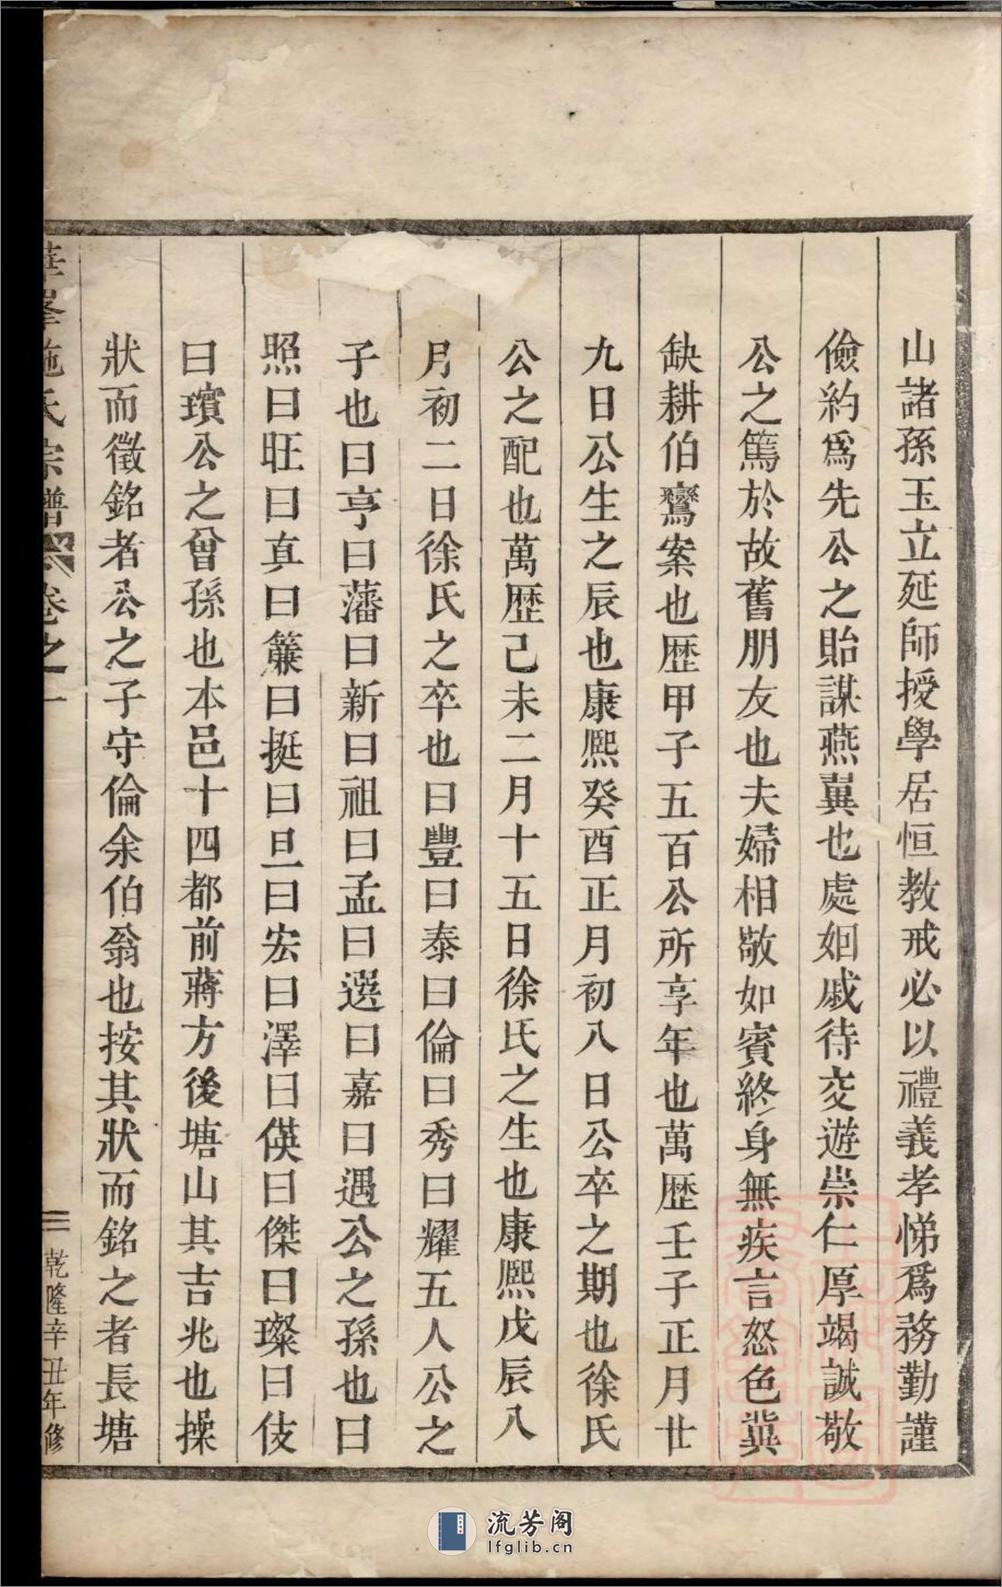 山諸孫玉立延師授學居恒教戒必以禮義孝悌爲務勤謹
儉約爲先公之貽謀燕翼也處姻戚待交遊崇仁厚竭誠敬
公之篤於故舊朋友也夫婦相敬如賓終身無疾言怒色冀
缺耕伯鸞案也歴甲子五百公所享年也萬歴壬子正月廿
九日公生之辰也康熈癸酉正月初八日公卒之期也徐氏
公之配也萬歴己未二月十五日徐氏之生也康熈戊辰八
月初二日徐氏之卒也曰豐曰泰曰倫曰秀曰耀五人公之
子也曰亨曰藩曰新曰祖曰孟曰選曰嘉曰遇公之孫也曰
照曰旺曰真曰簾曰挺曰旦曰宏曰澤曰偀曰傑曰璨曰伎
曰璸公之曾孫也本邑十四都前蔣方後塘山其吉兆也操
狀而徵銘者公之子守倫余伯翁也按其狀而銘之者長塘
華峯施氏宗譜 卷之一 三 乾隆辛丑年修
流芳阁
lfglib.cn